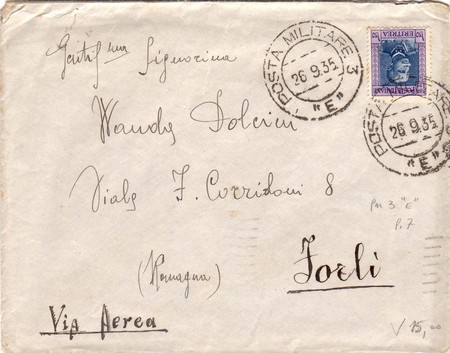 Gentil.ma Signorina
Wanda Dolcini
Viale F. Corridoni 8
(Romagna)
Forlì
Via Aerea
POSTA MILITARE 3
26.9.35
"E"
ERITREA
POSTE ITALIANE
POSTA MILITARE
26.9.35
"E"
Pm 3 "E"
P.7
V 15,00